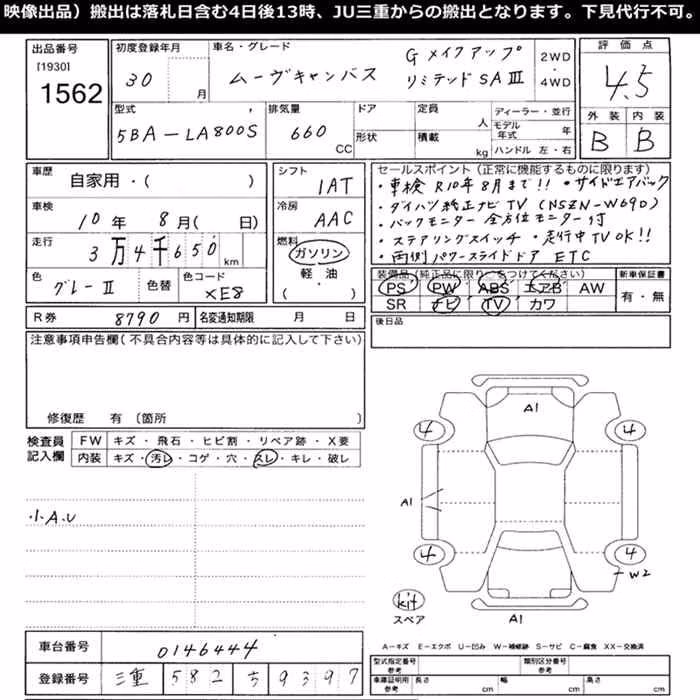 映像出品）搬出は落札日含む4日後13時、JU三重からの搬出となります。下見代行不可。
出品番号 [1930] 1562
初度登録年月 30 月
車名・グレード ムーヴキャンバス G メイクアップ リミテッド SAⅢ
2WD ・ 4WD
評価点 4.5
外装 B 内装 B
型式 5BA-LA800S
排気量 660 CC
ドア 形状
定員 人 積載 kg
ディーラー・並行
モデル年式 年
ハンドル 左・右
車歴 自家用・( )
車検 10年 8月( 日)
走行 3万4千650 km
色 グレーⅡ 色替 色コード XE8
シフト 1AT
冷房 AAC
燃料 ガソリン 軽油 ( )
セールスポイント（正常に機能するものに限ります）
・車検 R10年8月まで!! ・サイドエアバック
・ダイハツ純正ナビ TV (NSZN-W69D)
・バックモニター 全方位モニター付
・ステアリングスイッチ ・走行中TVOK!!
・両側パワースライドドア ETC
装備品（純正品に限り○をつけてください）
PS PW ABS エアB AW
SR ナビ TV カワ
新車保証書 有・無
後日品
R券 8790 円 名変通知期限 月 日
注意事項申告欄（不具合内容等は具体的に記入して下さい）
修復歴 有〔箇所 〕
検査員記入欄
FW キズ・飛石・ヒビ割・リペア跡・X要
内装 キズ・汚レ・コゲ・穴・スレ・キレ・破レ
・小A.U
A1
4 4
A1
4 4
W2
kit
スペア
A1
A－キズ E－エクボ U－凹み W－補修跡 S－サビ C－腐食 XX－交換済
車台番号 0146444
登録番号 三重 582 ち 9397
型式指定番号 参考 類別区分番号 参考
車庫証明用 参考 長さ cm 幅 cm 高さ cm